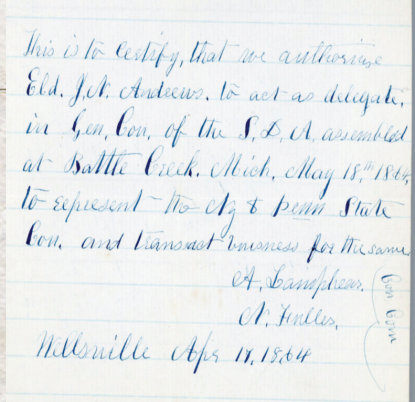 This is to certify, that we authorise
Eld. J. N. Andrews. to act as delegate,
in Gen, Con, of the S. D. A, assembled
at Battle Creek. Mich, May 18,th 1864,
to represent the N Y & Penn State
Con. and transact buisness for the same.
A. Lanphear.
N. Fuller,
Con Com
Wellsville Apr 18, 1864